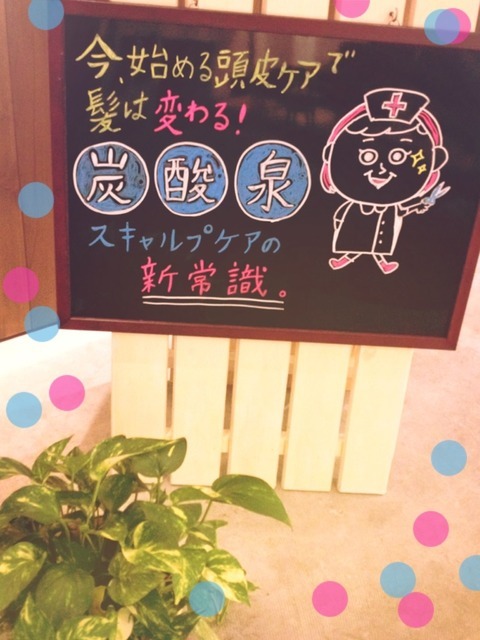 今、始める頭皮ケアで
髪は変わる!
炭酸泉
スキャルプケアの
新常識。